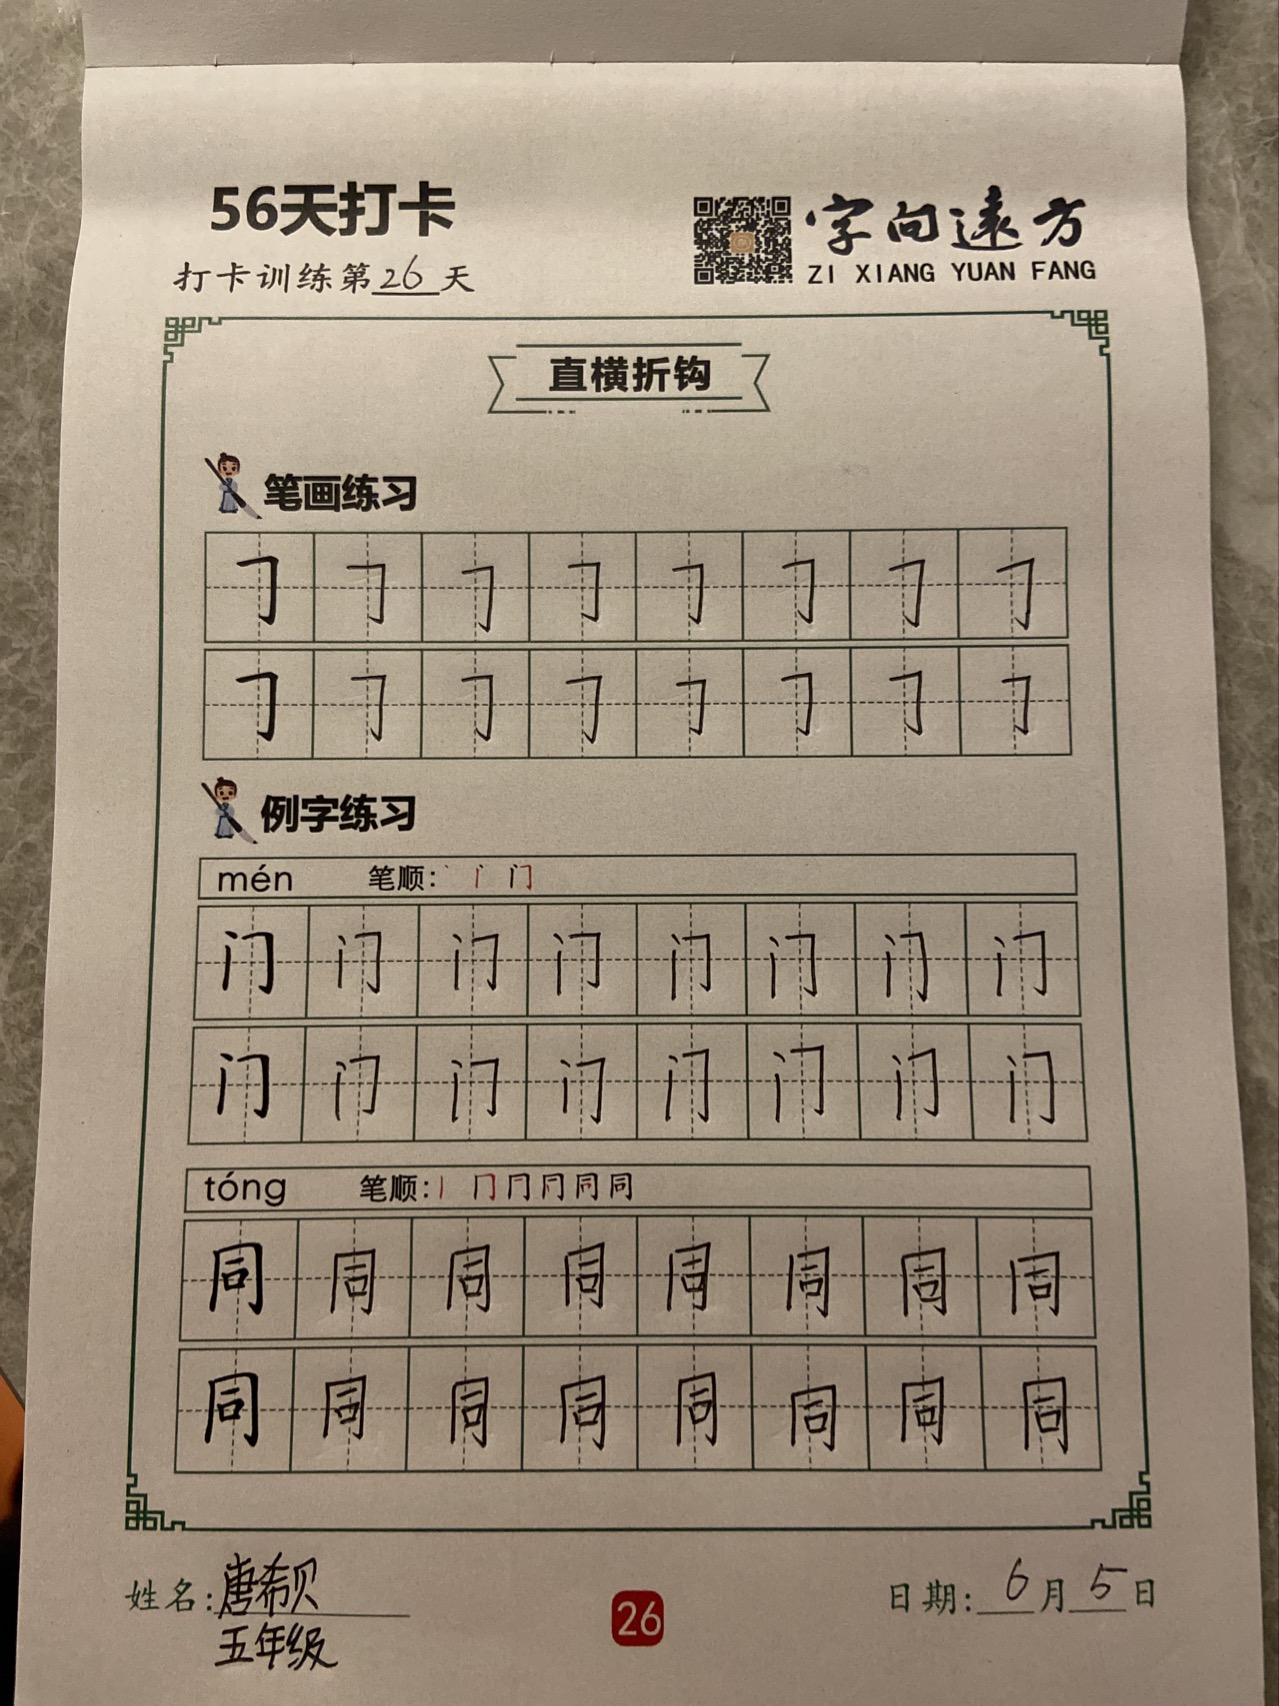 56天打卡
打卡训练第26天
字向远方
ZI XIANG YUAN FANG
直横折钩
笔画练习
㇆ ㇆ ㇆ ㇆ ㇆ ㇆ ㇆ ㇆
㇆ ㇆ ㇆ ㇆ ㇆ ㇆ ㇆ ㇆
例字练习
mén 笔顺: 丶 门
门 门 门 门 门 门 门 门
门 门 门 门 门 门 门 门
tóng 笔顺: 丨 冂 同 同
同 同 同 同 同 同 同 同
同 同 同 同 同 同 同 同
姓名:唐希贝
五年级
26
日期: 6月5日